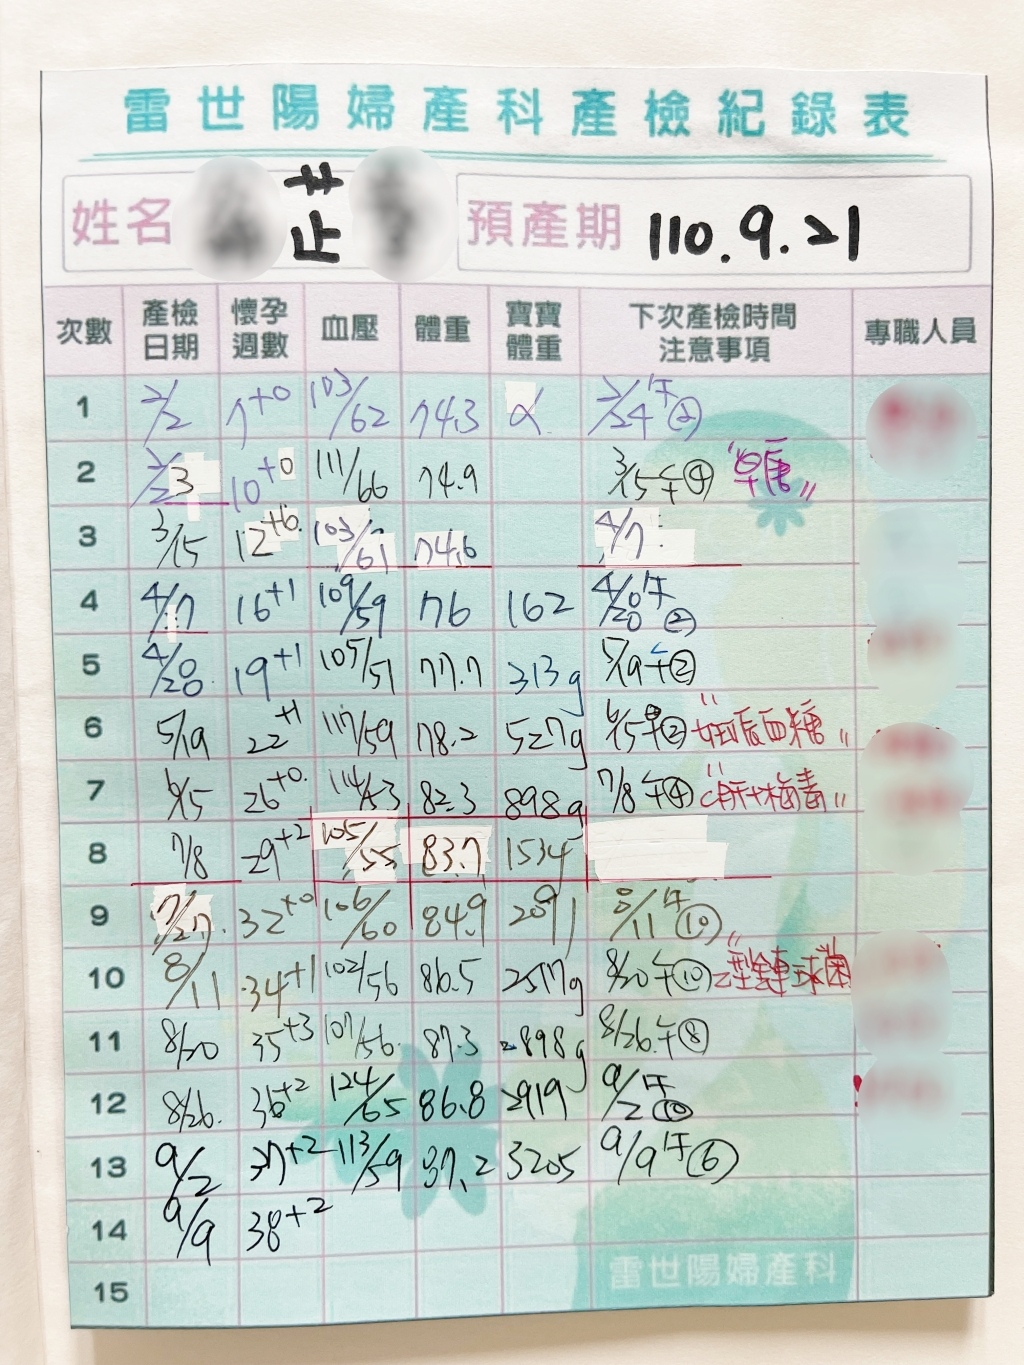 雷世陽婦產科產檢紀錄表
姓名 芷 預產期 110.9.21
次數 產檢日期 懷孕週數 血壓 體重 寶寶體重 下次產檢時間注意事項 專職人員
1 2/2 7+0 103/62 74.3 2/24 午②
2 2/23 10+0 111/66 74.9 3/15 午④ "早唐"
3 3/15 12+6 103/61 74.6 4/7
4 4/7 16+1 109/59 76 162 4/20 午②
5 4/20 19+1 105/51 77.7 313g 5/19 午②
6 5/19 22+1 117/59 78.2 527g 6/15 午② "妊娠血糖"
7 6/15 26+0 114/53 82.3 898g 7/8 午④ "肝+梅毒"
8 7/8 29+2 105/55 83.7 1534
9 7/27 32+0 106/60 84.9 2091 8/11 午⑩
10 8/11 34+1 102/56 86.5 2517g 8/20 午⑩ "乙型鏈球菌
11 8/20 35+3 107/56 87.3 2898g 8/26 午⑧
12 8/26 36+2 124/65 86.8 2919 9/2 午⑩
13 9/2 37+2 113/59 37.2 3205 9/9 午⑥
14 9/9 38+2
15
雷世陽婦產科